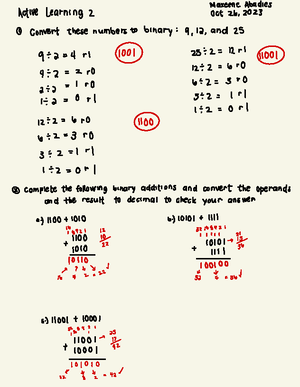 Active Learning 2
Maxeene Abadies
Oct 26, 2023
① Convert these numbers to binary: 9, 12, and 25
9÷2 = 4 r1
1001
9÷2 = 2 r0
2÷2 = 1 r0
1÷2 = 0 r1
25÷2 = 12 r1
11001
12÷2 = 6 r0
6÷2 = 3 r0
3÷2 = 1 r1
1÷2 = 0 r1
12÷2 = 6 r0
1100
6÷2 = 3 r0
3÷2 = 1 r1
1÷2 = 0 r1
② Complete the following binary additions and convert the operands
and the result to decimal to check your answer
a.) 1100 + 1010
1100
+ 1010
10110
12
10
22
b.) 10101 + 1111
10101
+ 1111
100100
c.) 11001 + 10001
11001
+ 10001
101010
25
17
42